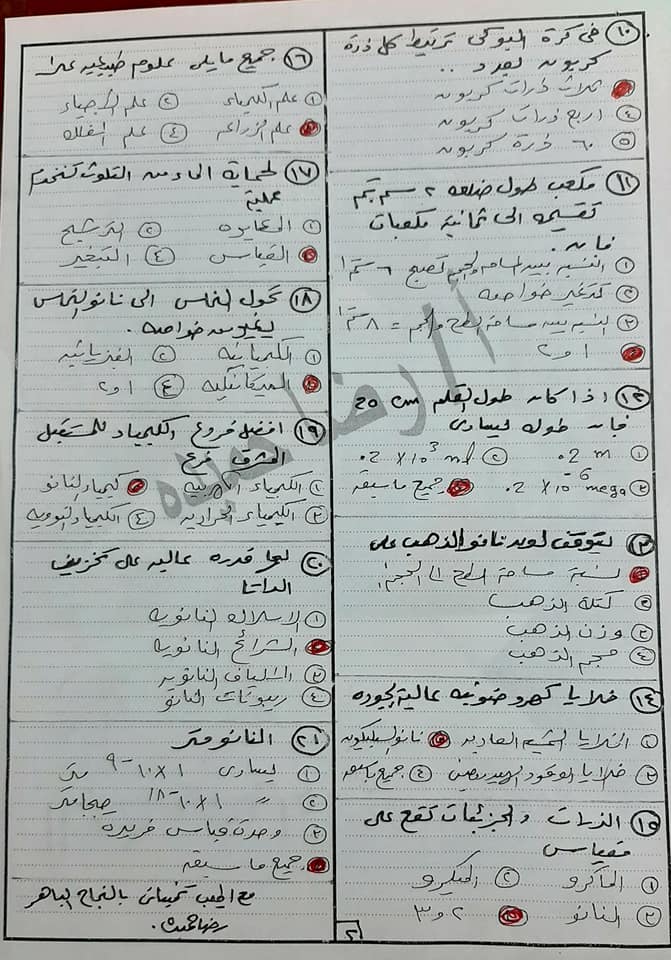 ١٠ فى كرة البوكى ترتبط كل ذرة
كربون بعدد ..
ثلاث ذرات كربون
٤ اربع ذرات كربون
٥ ٦٠ ذرة كربون
١١ مكعب طول ضلعه ٢ سم تم
تقسيمه الى ثمانية مكعبات
فان .
١ النسبه بين المساحه والحجم تصبح ٦ سم
٢ تتغير خواصه
٣ النسبه بين مساحة السطح والحجم = ٨ سم
١ و ٢
١٢ اذا كان طول القلم 20 cm
فان طوله يساوى
١ 0.2 m
٢ 0.2 x 10³
٣ 0.2 x 10⁻⁶ mega
جميع ما سبق
١٣ يتوقف لون نانو الذهب على
نسبة مساحة السطح الى الحجم
كتلة الذهب
وزن الذهب
٤ حجم الذهب
١٤ خلايا كهروضوئيه عالية الجوده
١ الخلايا الشمسيه العاديه
نانو السيليكون
٣ خلايا الوقود الهيدروجينى
٤ جميع ما سبق
١٥ الذرات والجزيئات تقع على
مقياس
١ الماكرو
٢ الميكرو
٣ النانو
٢ و ٣
١٦ جميع مايلى علوم طبيعيه عدا
١ علم الكيمياء
٢ علم الاحياء
علم الزراعه
٤ علم الفلك
١٧ لحماية الماء من التلوث نستخدم
عملية
١ المعايره
٢ الترشيح
القياس
٤ التبخير
١٨ تحول النحاس الى نانو النحاس
يغير من خواصه .
١ الكيميائيه
٢ الفيزيائيه
الميكانيكيه
٤ ١ و ٢
١٩ افضل فروع الكيمياء للمستقبل
المشرق فرع
١ الكيمياء الكهربيه
كيمياء النانو
٣ الكيمياء الحراريه
٤ الكيمياء النوويه
٢٠ لها قدره عاليه على تخزين
الداتا
١ الاسلاك النانويه
الشرائح النانويه
٣ الالياف النانويه
٤ روبوتات النانو
٢١ النانو متر
١ يساوى ١ x ١٠⁻⁹ متر
٢ " ١ x ١٠⁻¹⁸ جيجا متر
٣ وحدة قياس فريده
جميع ما سبق
مع اطيب تمنياتى بالنجاح الباهر
٢